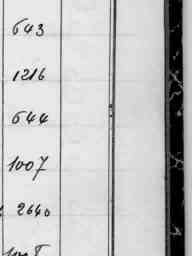 643
1216
644
1007
2640